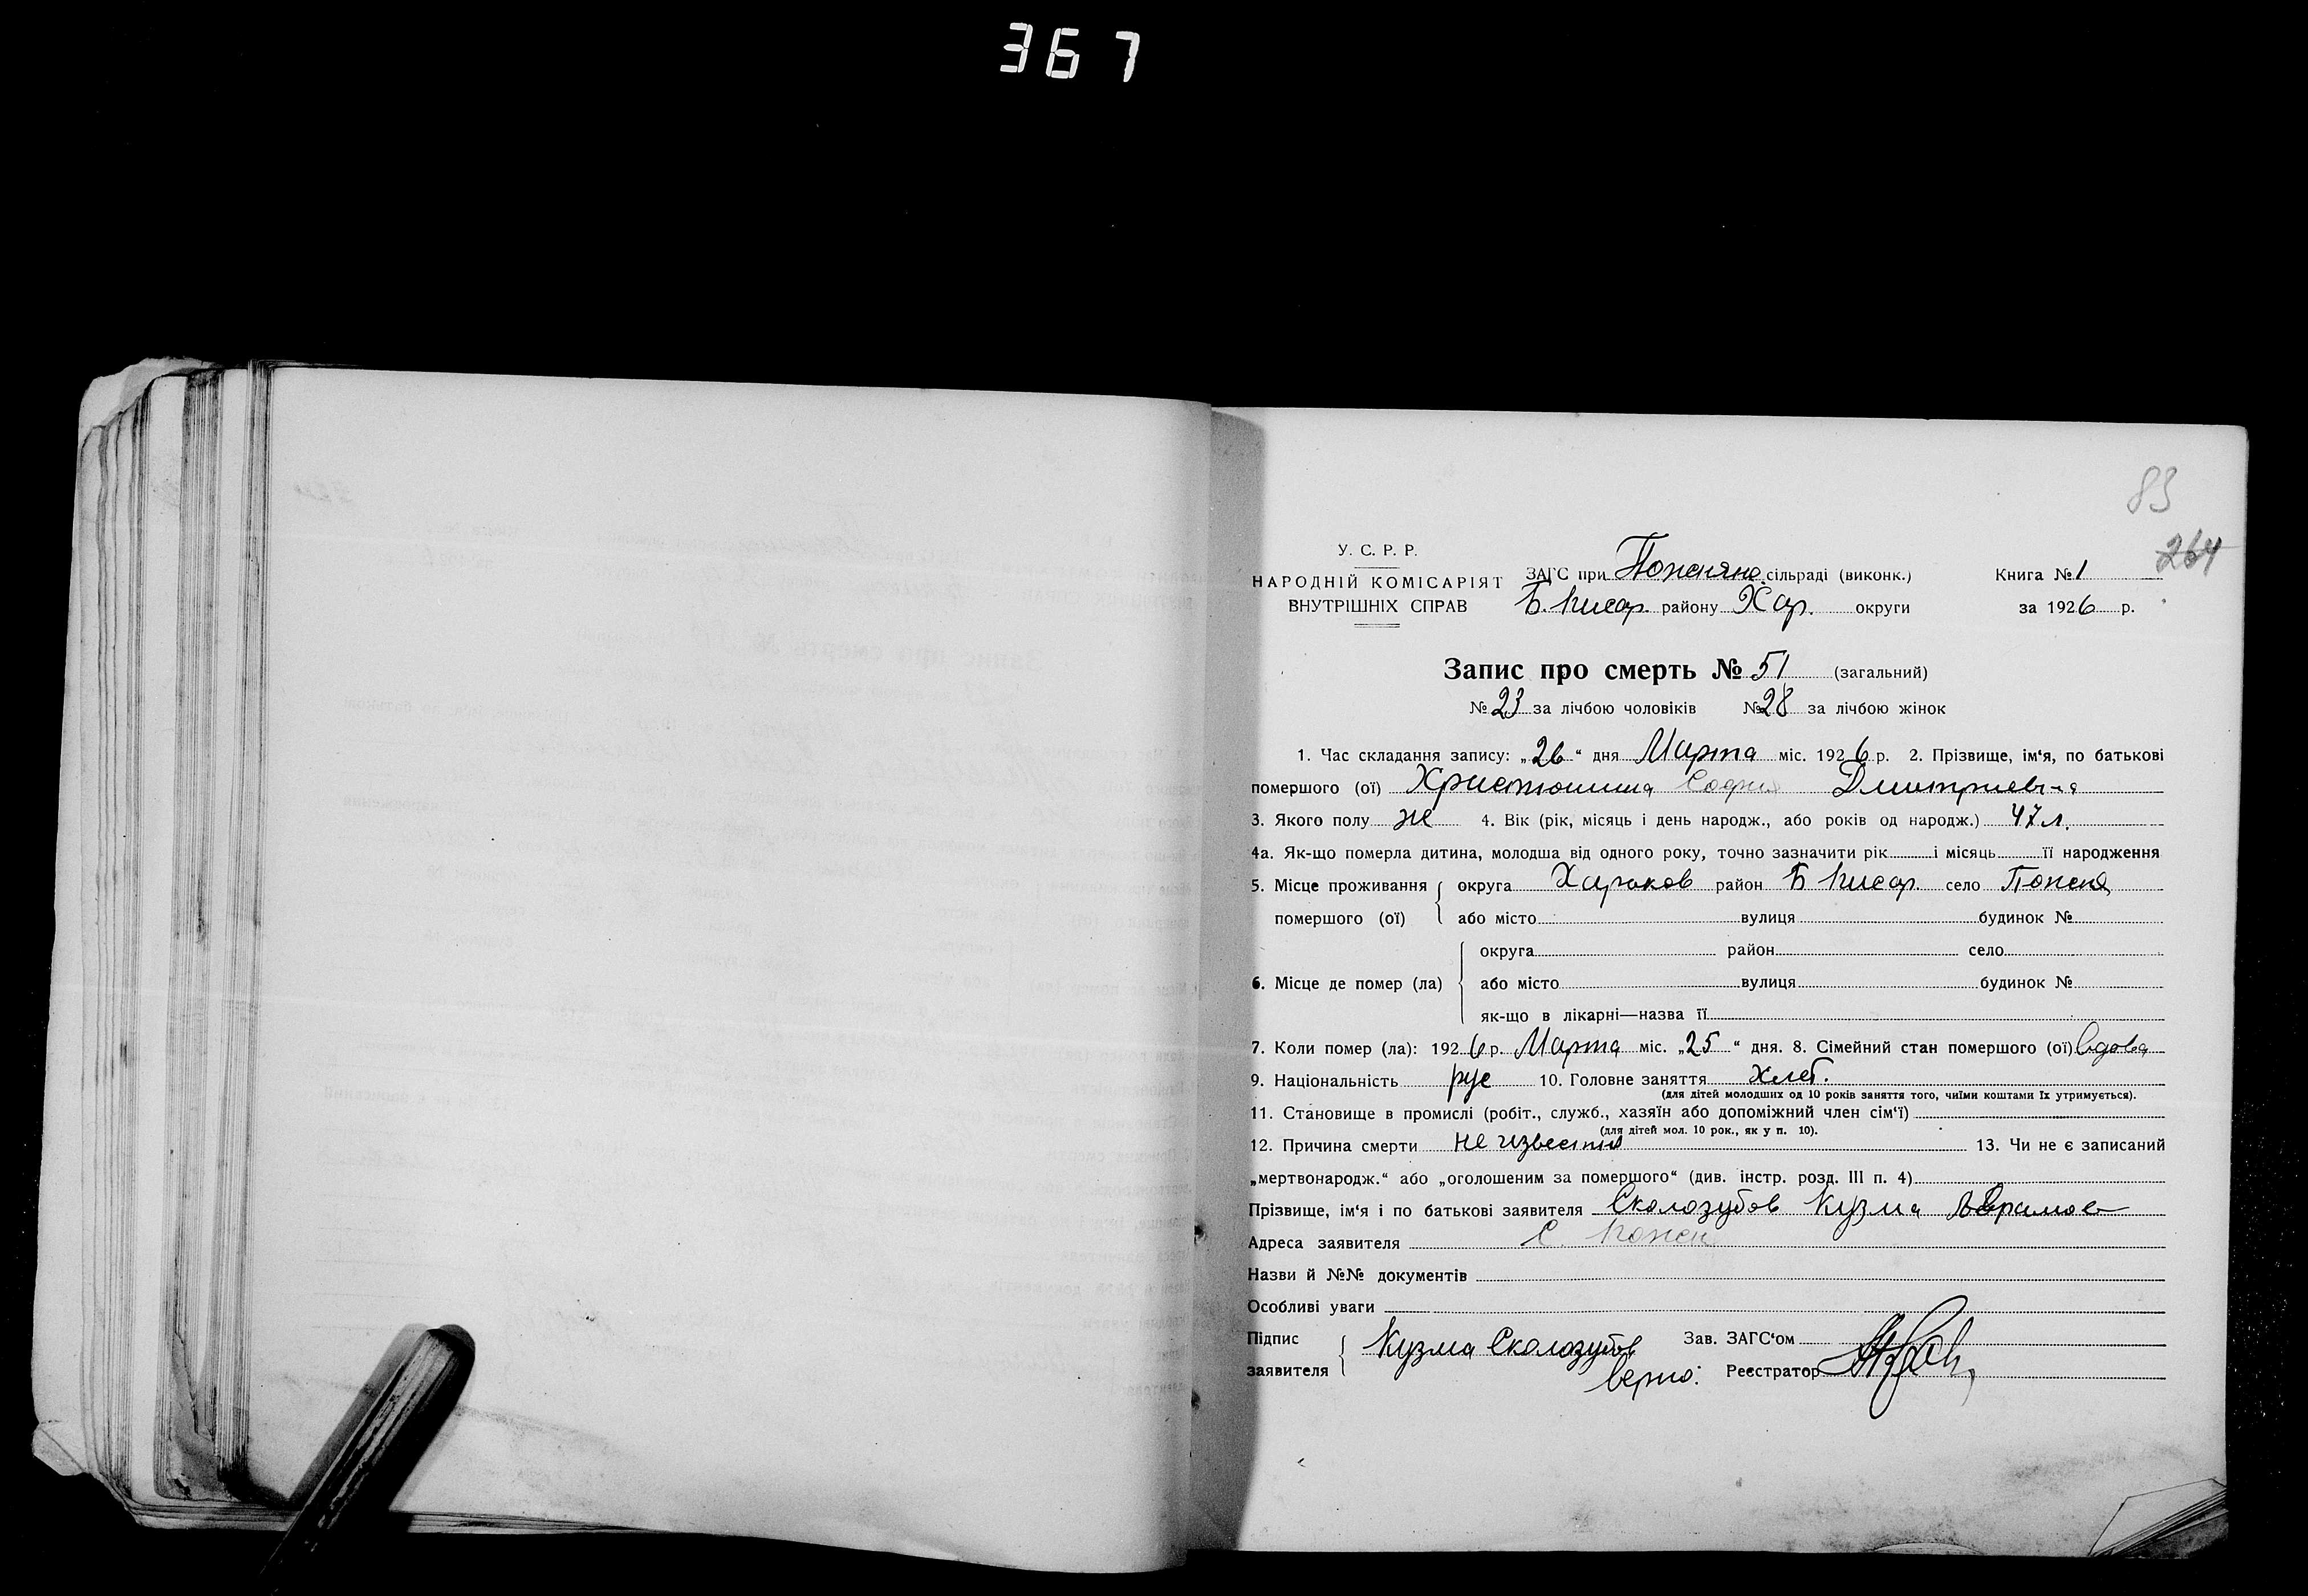 367
83
264
У. С. Р. Р.
НАРОДНІЙ КОМІСАРІЯТ
ВНУТРІШНІХ СПРАВ
ЗАГС при сільраді (виконк.)
Б. Писар. району Хар. округи
Книга № 1
за 1926 р.
Запис про смерть № 51 (загальний)
№ 23 за лічбою чоловіків № 28 за лічбою жінок
1. Час складання запису: „26“ дня Марта міс. 1926 р. 2. Прізвище, ім‘я, по батькові
помершого (ої) София Дмитриевна
3. Якого полу же 4. Вік (рік, місяць і день народж., або років од народж.) 47 л.
4а. Як-що померла дитина, молодша від одного року, точно зазначити рік і місяць її народження
5. Місце проживання помершого (ої) округа Харьков район Б Писар. село
або місто вулиця будинок №
6. Місце де помер (ла) округа район село
або місто вулиця будинок №
як-що в лікарні—назва її
7. Коли помер (ла): 1926 р. Марта міс. „25“ дня. 8. Сімейний стан помершого (ої) вдова
9. Національність рус 10. Головне заняття хлеб.
(для дітей молодших од 10 років заняття того, чиїми коштами їх утримується).
11. Становище в промислі (робіт., служб., хазяїн або допоміжний член сім‘ї)
(для дітей мол. 10 рок., як у п. 10).
12. Причина смерти не известно 13. Чи не є записаний
„мертвонародж.“ або „оголошеним за помершого“ (див. інстр. розд. III п. 4)
Прізвище, ім‘я і по батькові заявителя Сколозубов Кузма
Адреса заявителя С.
Назви й №№ документів
Особливі уваги
Підпис заявителя Кузма Сколозубов Зав. ЗАГС‘ом
верно: Реєстратор